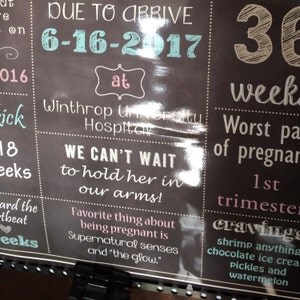 ut
e
s on
2016
rick
18
eeks
ard the
rtbeat
eeks
DUE TO ARRIVE
6-16-2017
at
Winthrop University
Hospital
WE CAN'T WAIT
to hold her in
our arms!
Favorite thing about
being pregnant is
Supernatural senses
and "the glow."
30
weeks
Worst pa
of pregnan
1st
trimester
cravings
shrimp anything
chocolate ice cream
Pickles and
watermelon